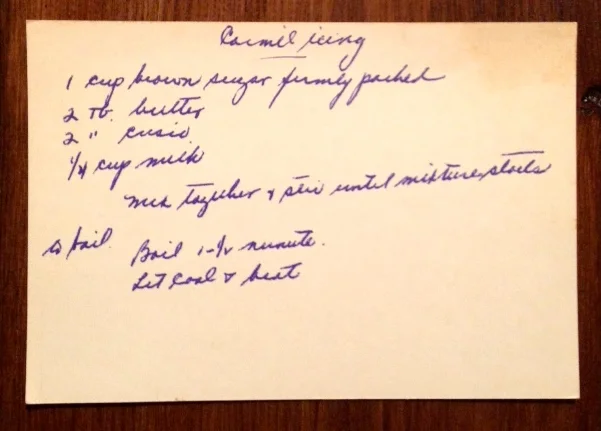 Carmel icing
1 cup brown sugar firmly packed
2 Tb. butter
2 " crisco
1/4 cup milk
mix together & stir until mixture starts
to boil. Boil 1-1/2 minute.
Let cool & beat